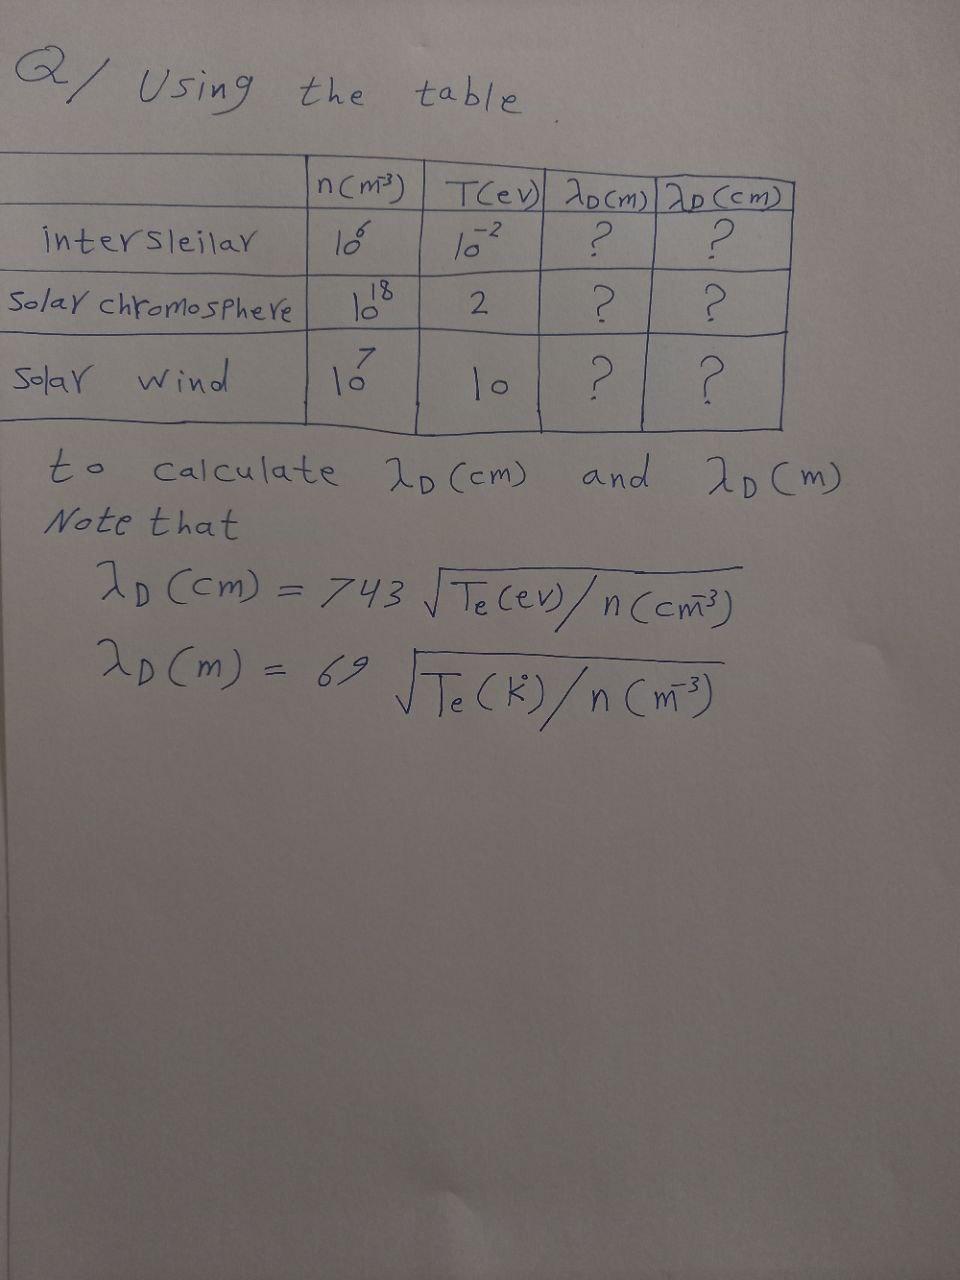 Q/ Using the table.
n(m⁻³) T(ev) λD(m) λD(cm)
intersleilar 10⁶ 10⁻² ? ?
Solar chromosphere 10¹⁸ 2 ? ?
Solar wind 10⁷ 10 ? ?
to calculate λD(cm) and λD(m)
Note that
λD(cm) = 743 √Te(ev)/n(cm⁻³)
λD(m) = 69 √Te(K°)/n(m⁻³)